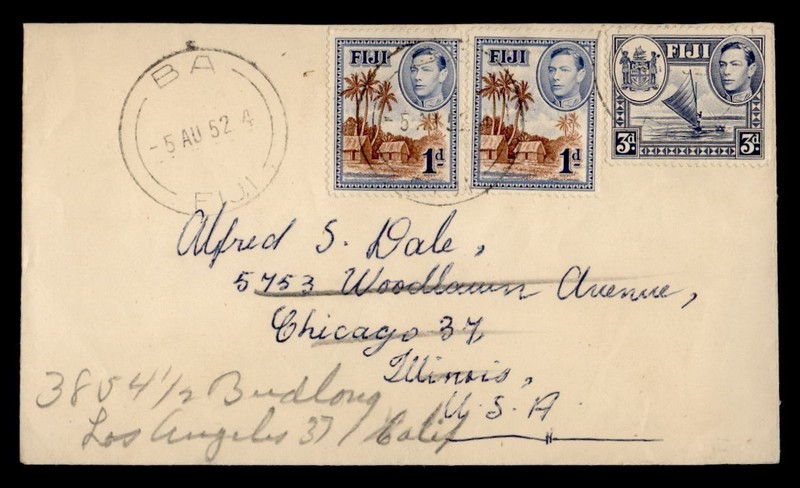 BA
-5 AU 52 4
FIJI
FIJI
1d
-5
52
FIJI
1d
FIJI
3d 3d
Alfred S. Dale,
5753 Woodlawn Avenue,
Chicago 37,
Illinois,
U.S.A.
3854 1/2 Budlong
Los Angeles 37 / Calif